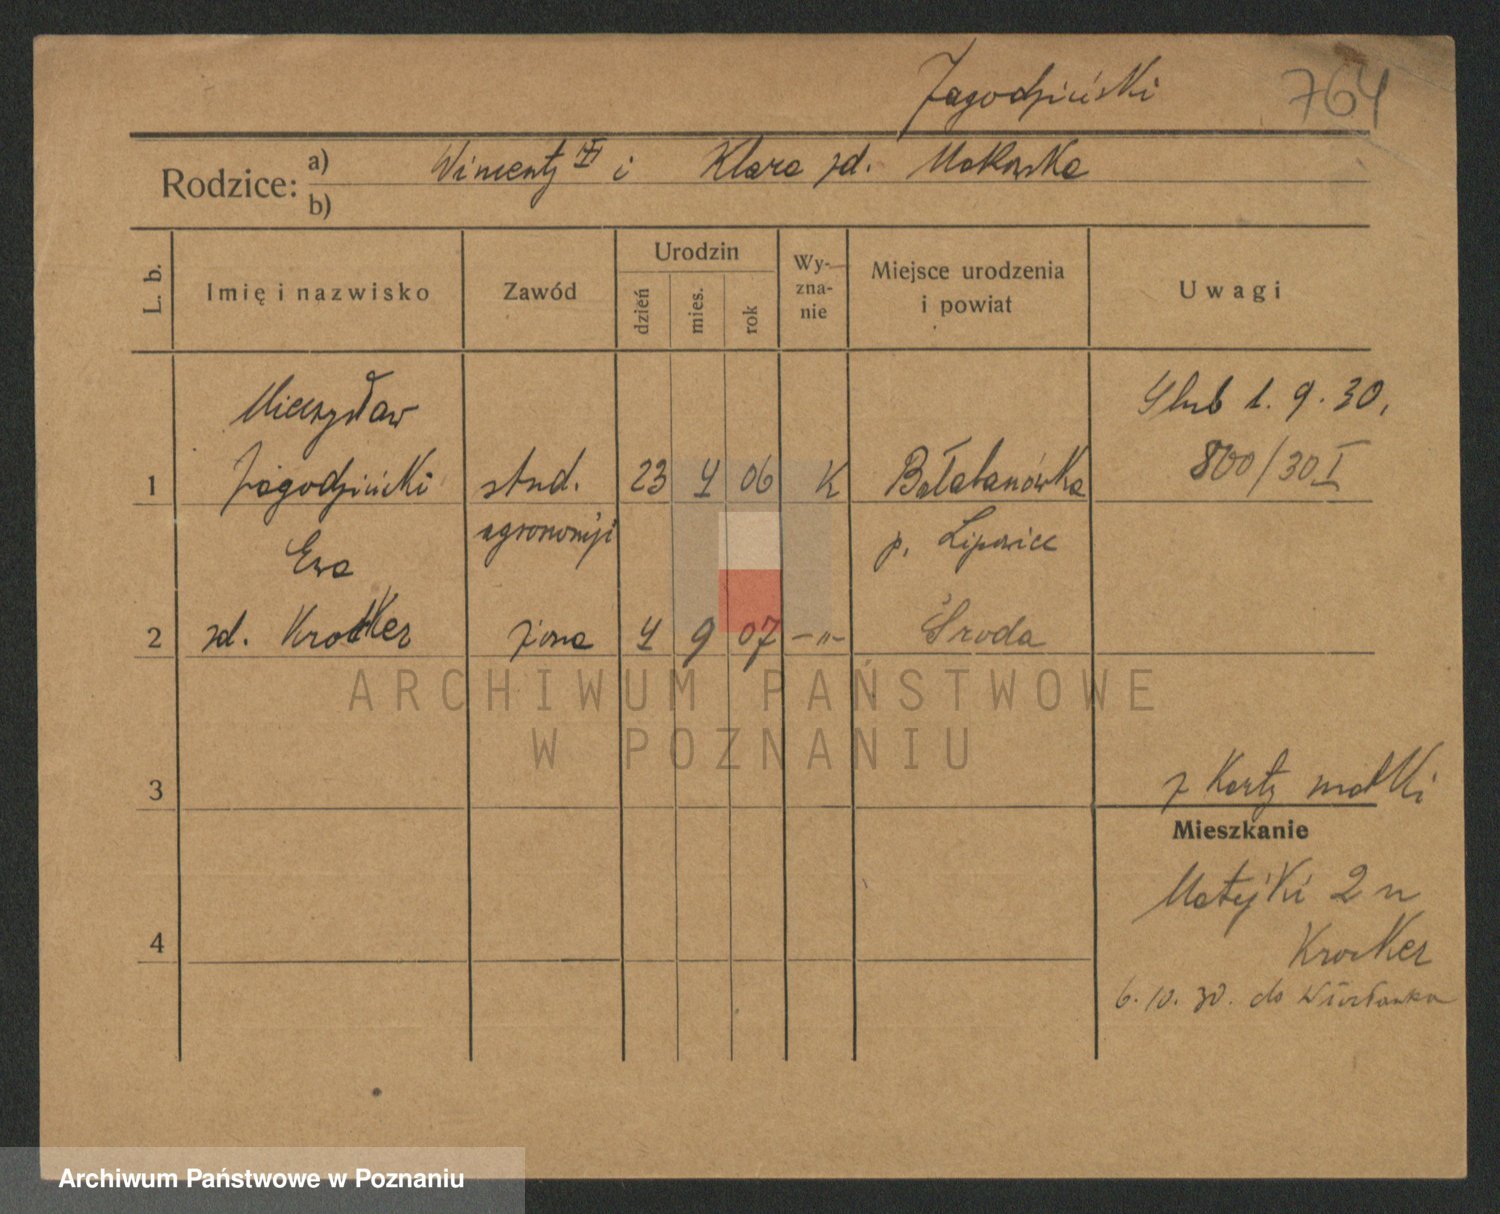 Jagodziński 764
Rodzice: a) Wincenty i Klara zd. Makowska
b)
L. b. Imię i nazwisko Zawód Urodzin dzień mies. rok Wy-zna-nie Miejsce urodzenia i powiat Uwagi
Mieczysław Ślub 1. 9. 30.
1 Jagodziński stud. 23 4 06 K Bałabanówka 800/30 I
agronomji p. Lipowiec
Ewa
2 zd. Krocker żona 4 9 07 -"- Środa
ARCHIWUM PAŃSTWOWE
W POZNANIU
3 z Karty matki
Mieszkanie
Matejki 2
4 Krocker
6. 10. 30. do Włocławka
Archiwum Państwowe w Poznaniu